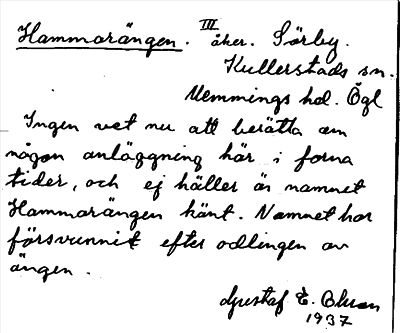 Hammarängen. III åker. Sörby.
Kullerstads sn.
Memmings hd. Ögl
Ingen vet nu att berätta om
någon anläggning här i forna
tider, och ej häller är namnet
Hammarängen känt. Namnet har
försvunnit efter odlingen av
ängen.
Gustaf E. Ohlson
1937